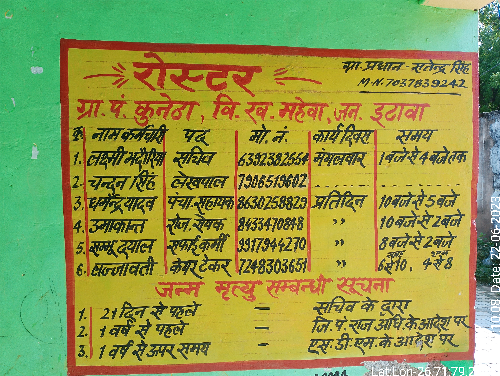 रोस्टर
ग्रा. प्रधान - सतेन्द्र सिंह
M.N. 7037839242
ग्रा. पं. कुनेठा, वि. ख. महेवा, जन. इटावा
क्र. नाम कर्मचारी पद मो. नं. कार्य दिवस समय
1. लक्ष्मी भदौरिया सचिव 6392382554 मंगलवार 1 बजे से 4 बजे तक
2. चन्दन सिंह लेखपाल 7906519602
3. धर्मेन्द्र यादव पंचा. सहायक 8630258829 प्रतिदिन 10 बजे से 5 बजे
4. उमाकान्त रोज. सेवक 9433470848 ,, 10 बजे से 2 बजे
5. सम्भू दयाल सफाई कर्मी 9917944270 ,, 8 बजे से 2 बजे
6. लज्जावती केयर टेकर 7248303651 ,, 6 से 10, 4 से 8
जन्म मृत्यु सम्बन्धी सूचना
1. 21 दिन से पहले - सचिव के द्वारा
2. 1 वर्ष से पहले - जि. पं. राज. अधि. के आदेश पर
3. 1 वर्ष से ऊपर समय - एस. डी. एम. के आदेश पर
Date: 22-06-2023
Lat Lon - 26.71,79.2